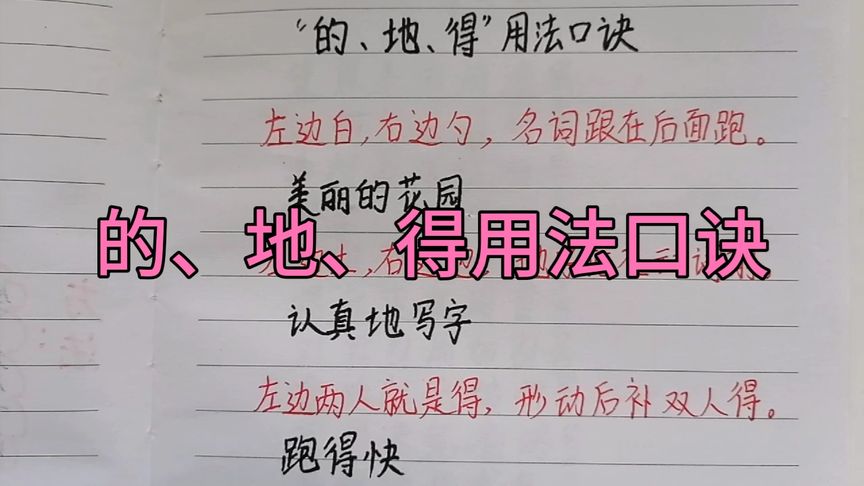 “的、地、得”用法口诀
左边白，右边勺，名词跟在后面跑。
美丽的花园
的、地、得用法口诀
认真地写字
左边两人就是得，形动后补双人得。
跑得快